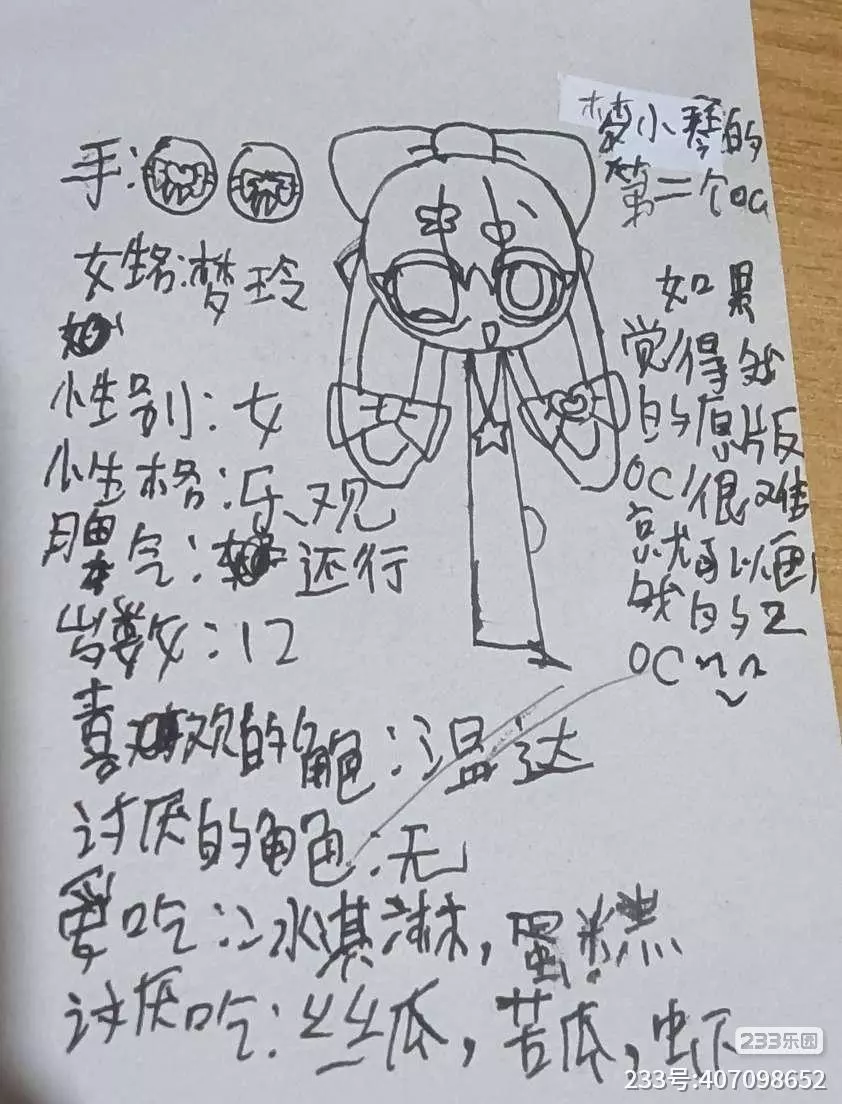 梦小琴的
第二个oc
手:
女生名:梦玲
性别:女
性格:乐观
脾气:还行
岁数:12
喜欢的角色:温达
讨厌的角色:无
爱吃:冰淇淋,蛋糕
讨厌吃:丝瓜,苦瓜,虾
如果
觉得我
的原版
OC很难
就可以画
我的2
OC
233乐园
233号:407098652